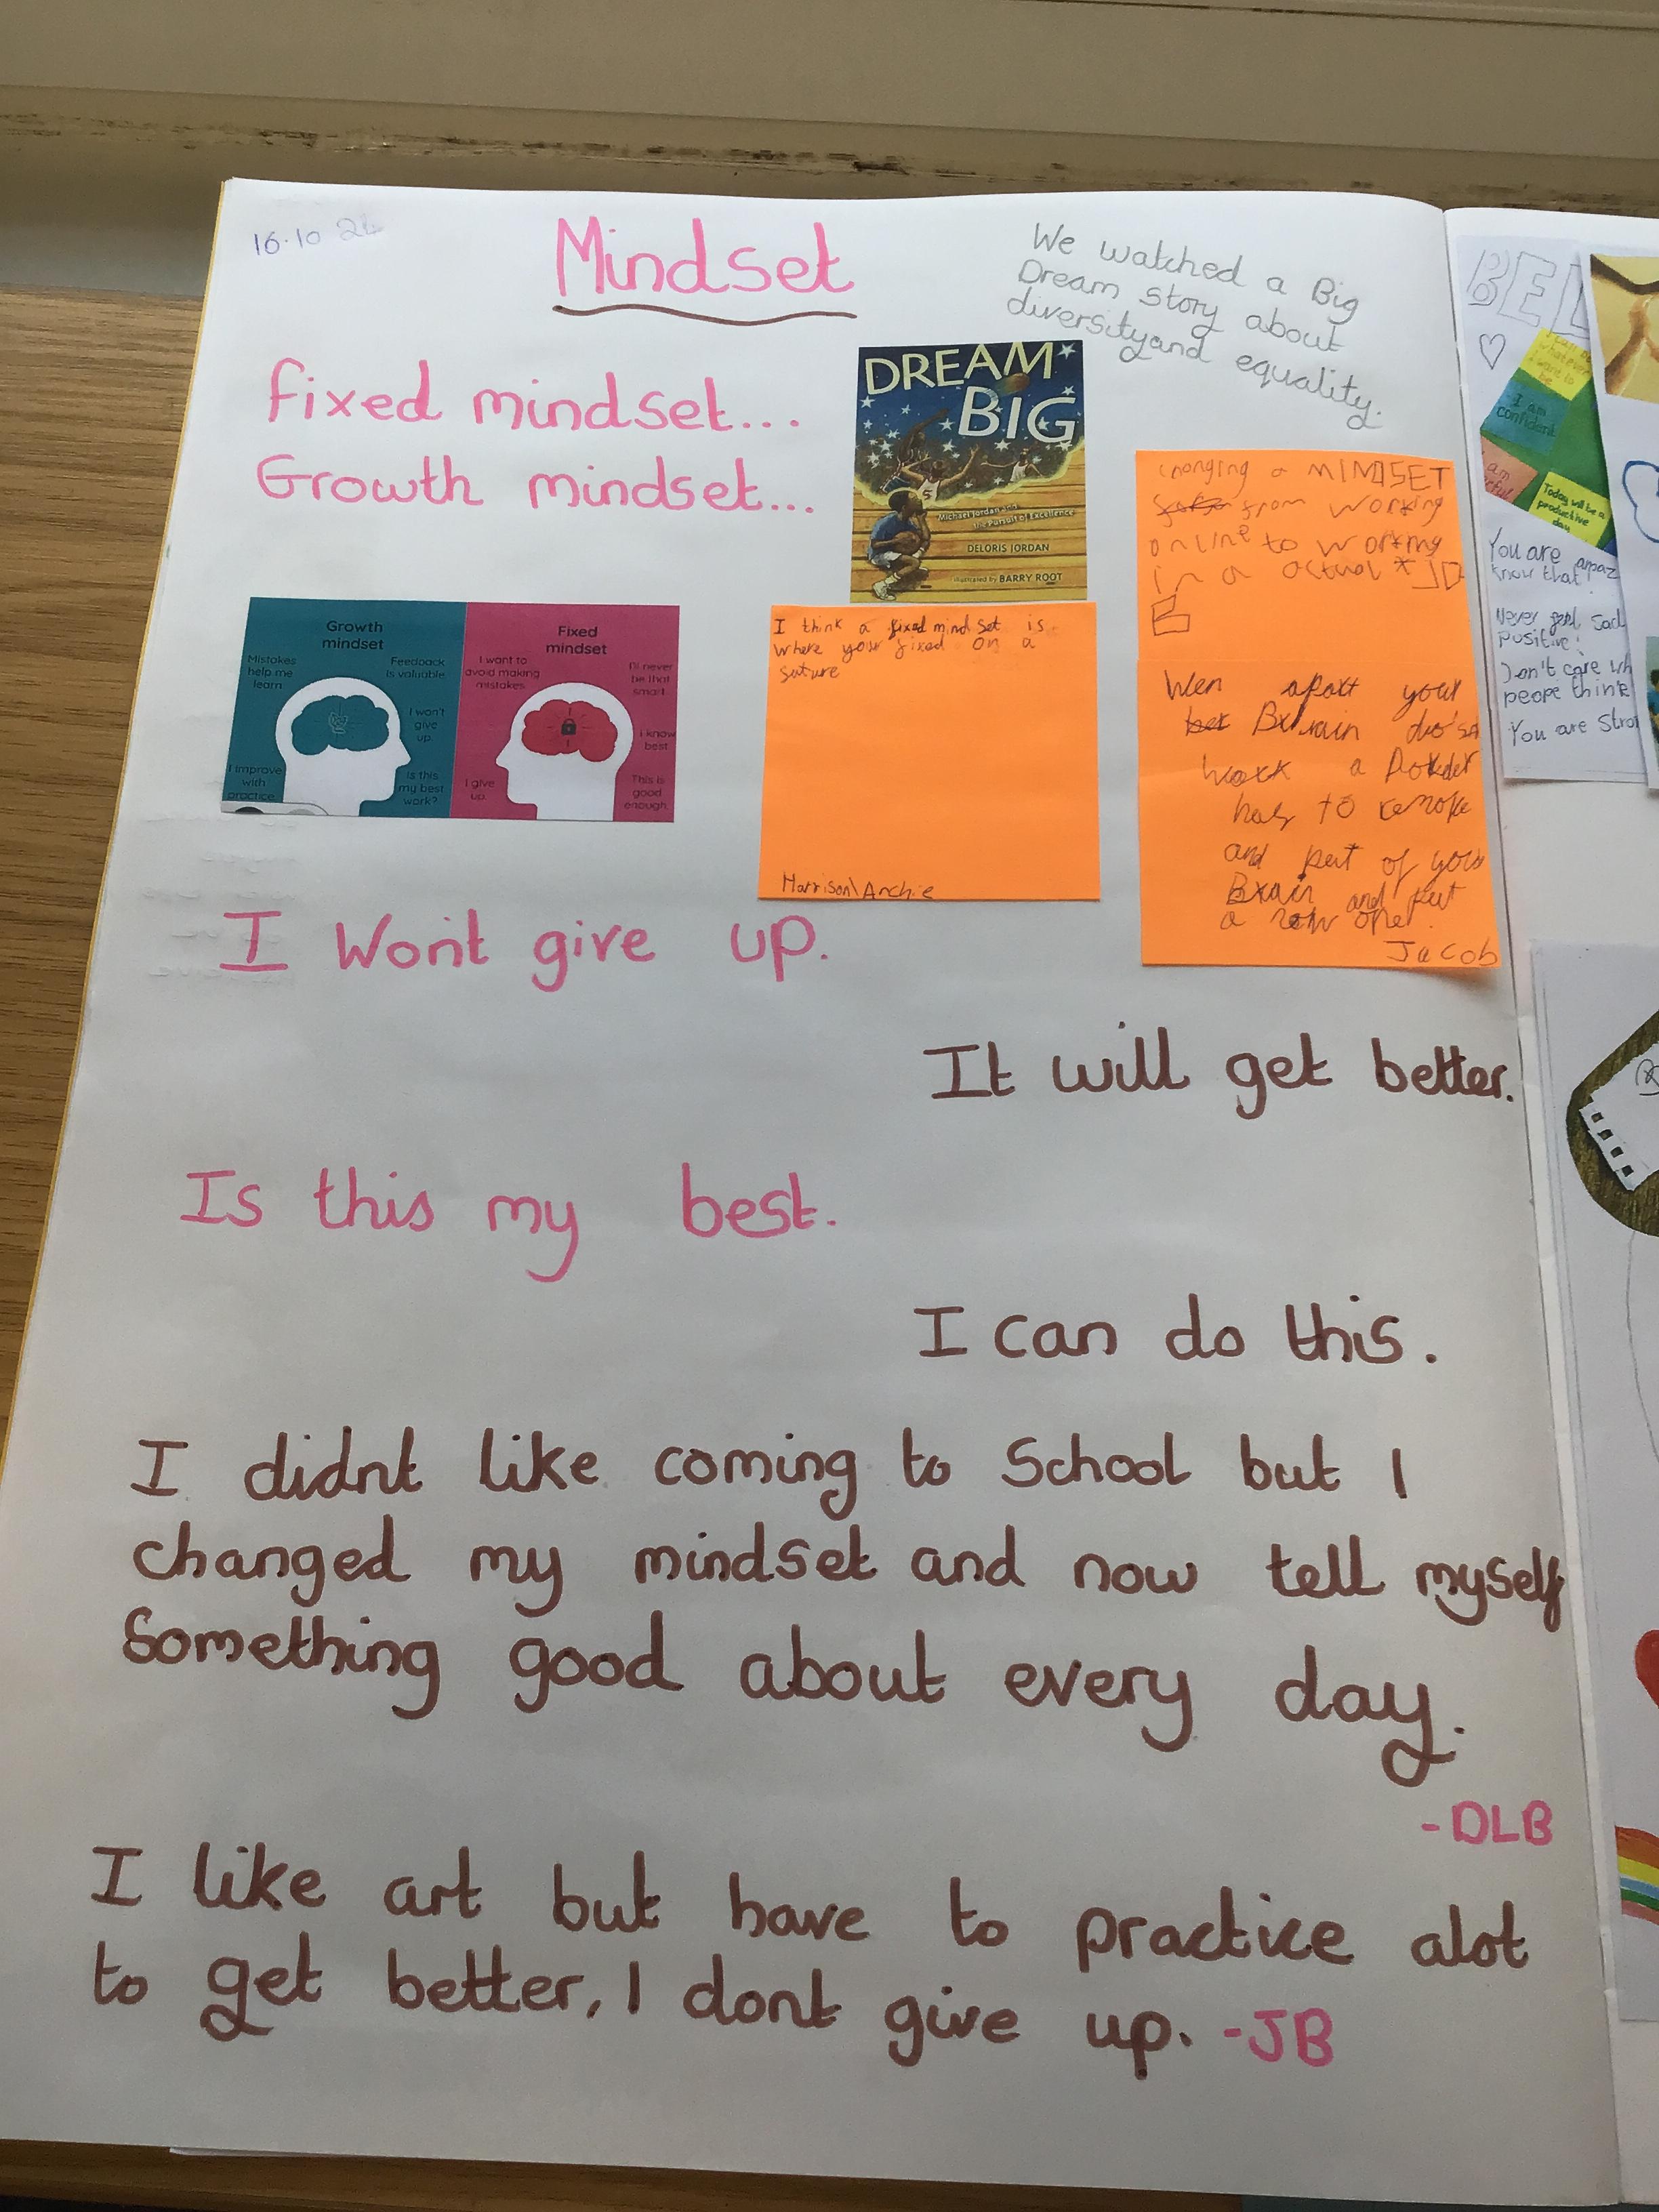 16.10
Mindset
We watched a Big
Dream story about
diversity and equality.
fixed mindset...
Growth mindset...
DREAM
BIG
5
Michael Jordan and
the Pursuit of Excellence
DELORIS JORDAN
illustrated by BARRY ROOT
Growth
mindset
Mistakes
help me
learn.
Feedback
is valuable.
I won't
give
up.
I improve
with
practice.
Is this
my best
work?
Fixed
mindset
I want to
avoid making
mistakes.
I'll never
be that
smart.
I know
best
I give
up.
This is
good
enough.
I think a fixed mind set is
where your fixed on a
suture
Harrison\Archie
changing a MINDSET
from working
online to working
in a actual
Wen apart your
Brain
work a
has to
and part of your
Brain and put
a new one.
Jacob
I Won't give up.
It will get better.
Is this my best.
I can do this.
I didnt like coming to School but I
changed my mindset and now tell myself
Something good about every day.
-DLB
I like art but have to practice alot
to get better, I dont give up. -JB
BEL
whatever
I want to
be
I am
confident
am
Today will be a
productive
day
You are amaz
know that!
Never feel sad
positive!
Don't care wh
peope think
You are stro